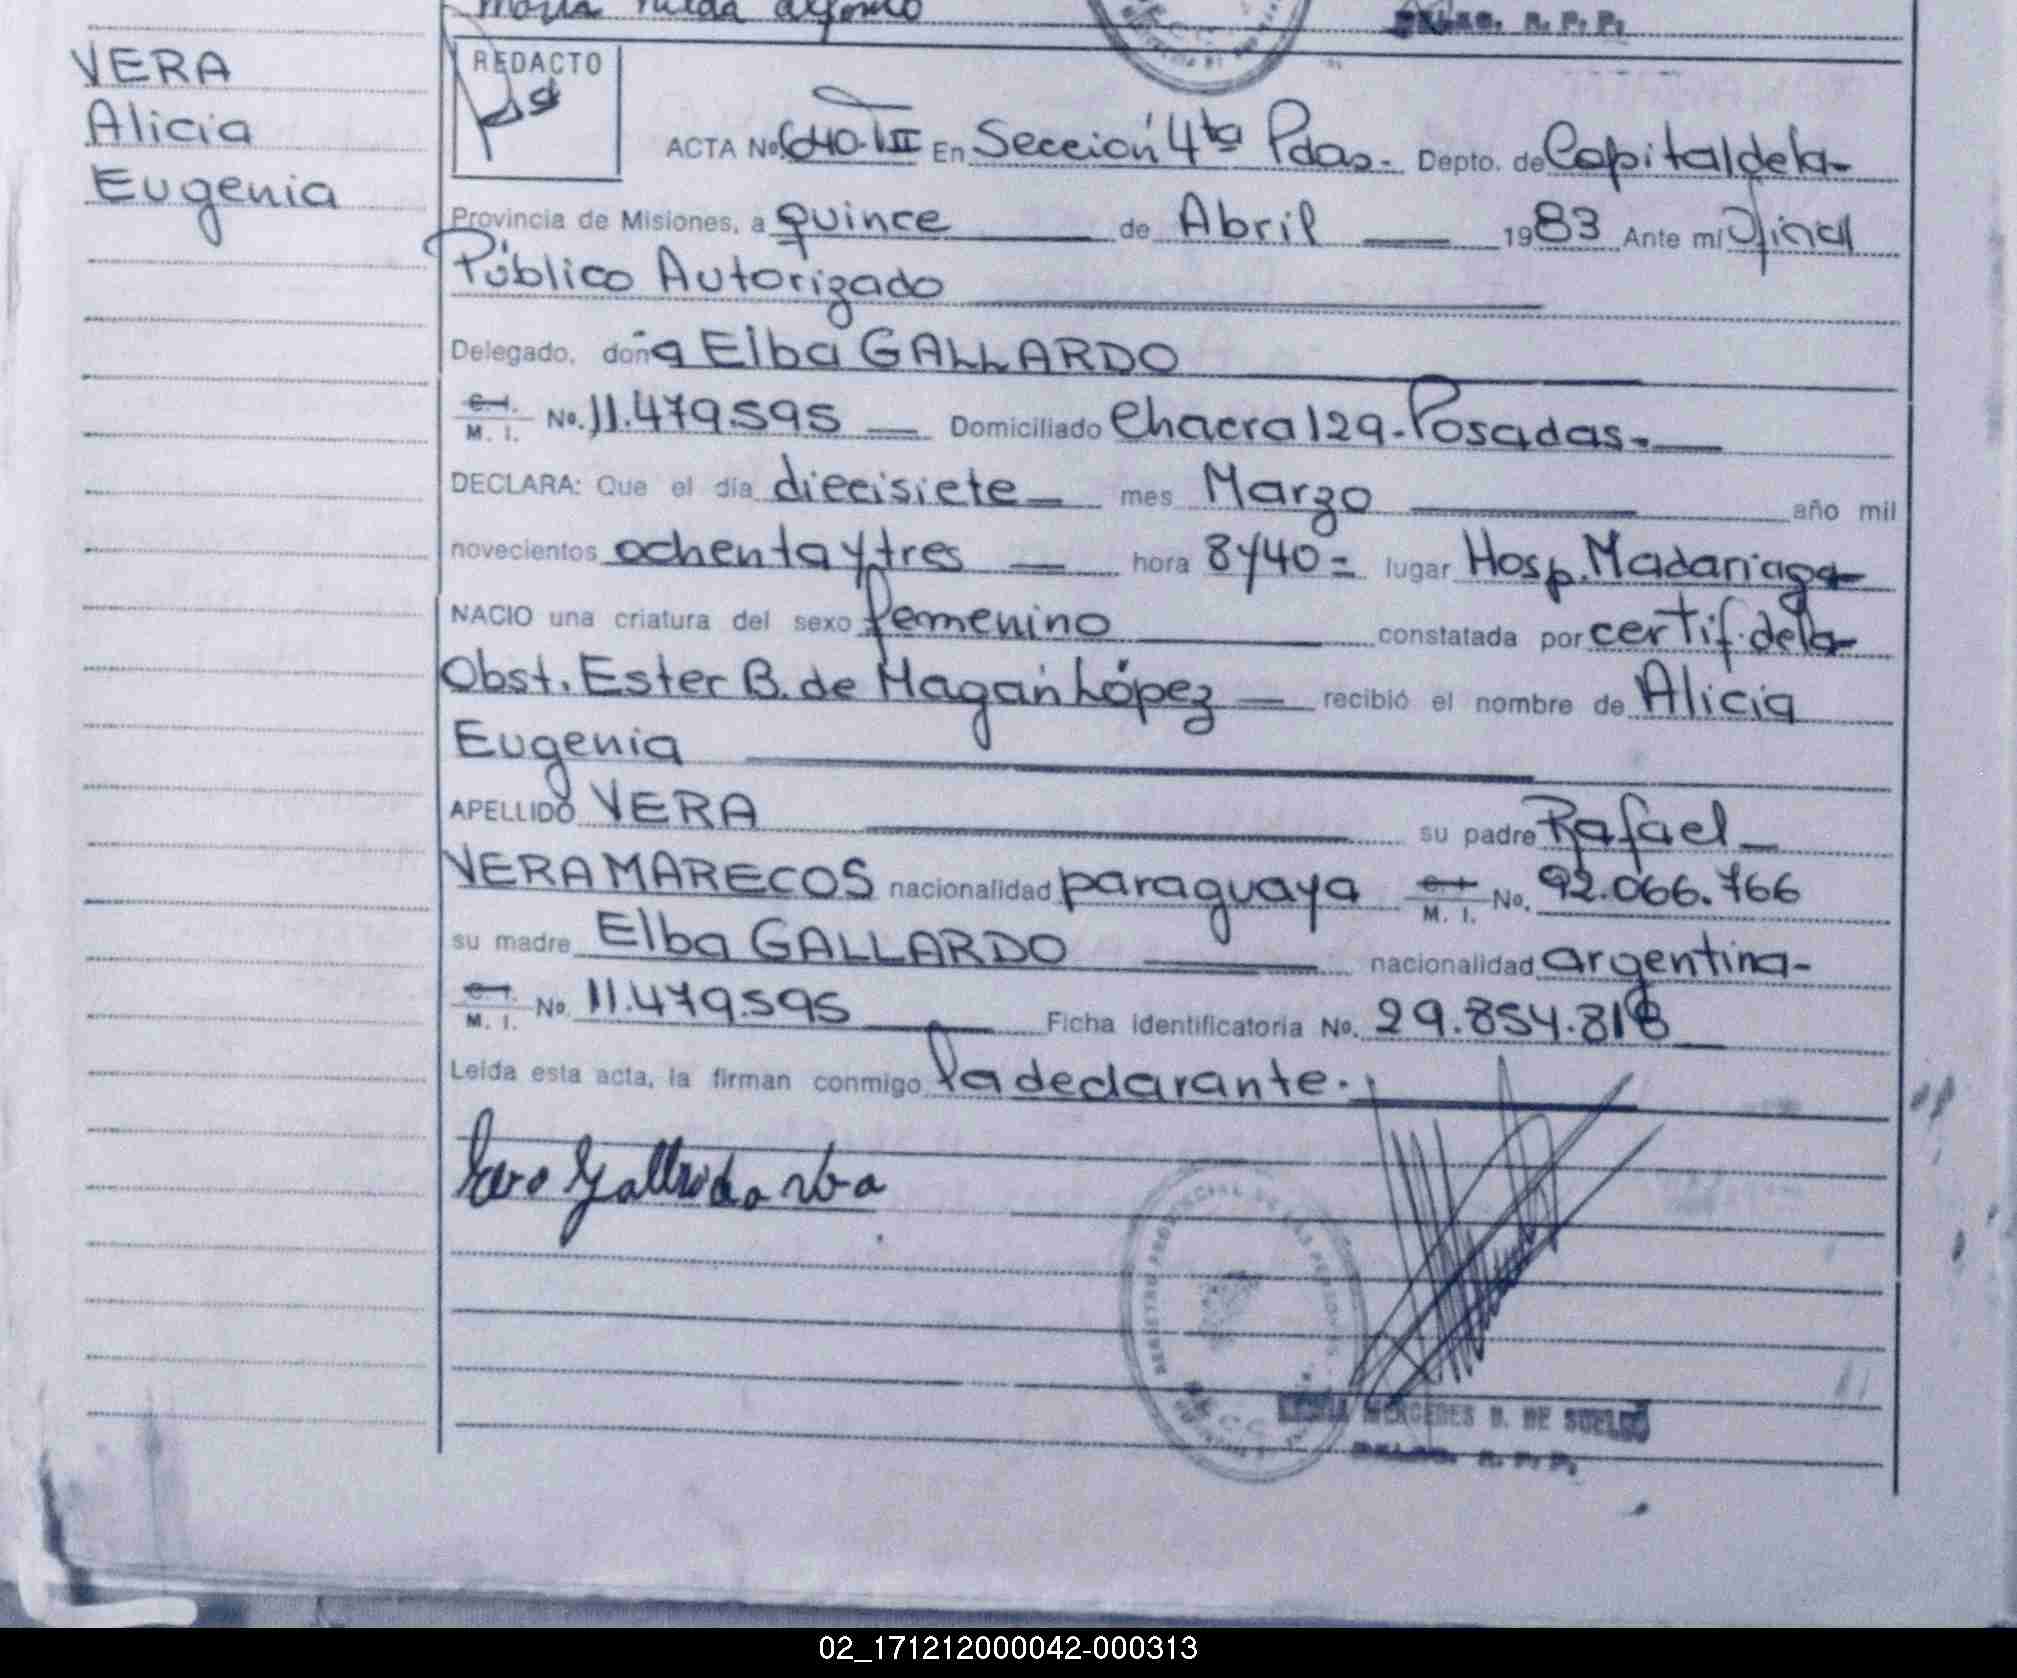 María Hilda Alfonso
DELEG. R. P. P.
VERA
Alicia
Eugenia
REDACTO
ACTA No. 640. TII En Sección 4ta Pdas.- Depto. de Capital de la-
Provincia de Misiones, a quince de Abril 1983 Ante mí Oficial
Público Autorizado
Delegado, doña Elba GALLARDO
C. I. M. I. No. 11.479.595 Domiciliado Chacra 129-Posadas.-
DECLARA: Que el día diecisiete mes Marzo año mil
novecientos ochenta y tres hora 8y40= lugar Hosp. Madariaga
NACIO una criatura del sexo femenino constatada por certif. de la
Obst. Ester B. de Magan López recibió el nombre de Alicia
Eugenia
APELLIDO VERA su padre Rafael
VERA MARECOS nacionalidad paraguaya C. I. M. I. No. 92.066.766
su madre Elba GALLARDO nacionalidad argentina-
C. I. M. I. No. 11.479.595 Ficha identificatoria No. 29.854.818
Leída esta acta, la firman conmigo la declarante.
REGISTRO PROVINCIAL DE LAS PERSONAS
MERCEDES D. DE SUELDO
DELEG. R. P. P.
02_171212000042-000313